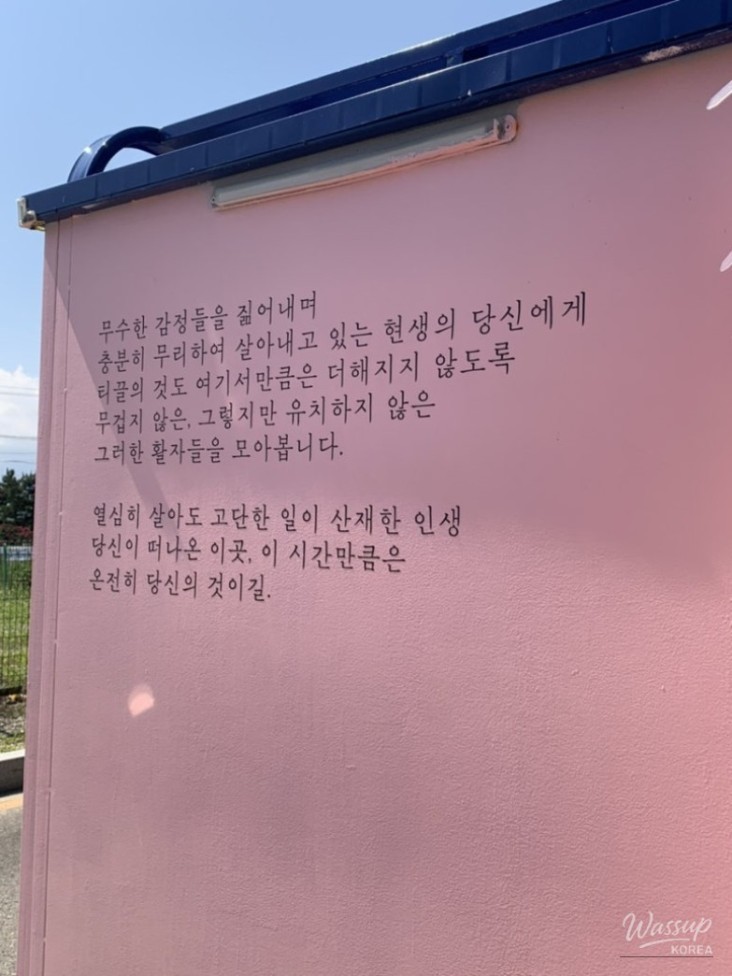 무수한 감정들을 짊어내며
충분히 무리하여 살아내고 있는 현생의 당신에게
티끌의 것도 여기서만큼은 더해지지 않도록
무겁지 않은, 그렇지만 유치하지 않은
그러한 활자들을 모아봅니다.
열심히 살아도 고단한 일이 산재한 인생
당신이 떠나온 이곳, 이 시간만큼은
온전히 당신의 것이길.
Wassup
KOREA